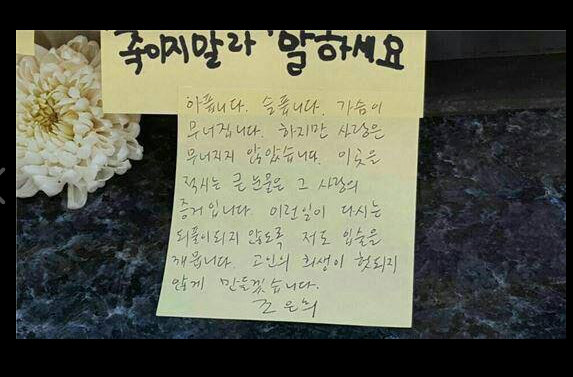 '죽이지말라' 말하세요
아픕니다. 슬픕니다. 가슴이
무너집니다. 하지만 사랑은
무너지지 않았습니다. 이곳을
적시는 큰 눈물은 그 사랑의
증거입니다. 이런일이 다시는
되풀이되지 않도록 저도 입술을
깨뭅니다. 고인의 희생이 헛되지
않게 만들겠습니다.